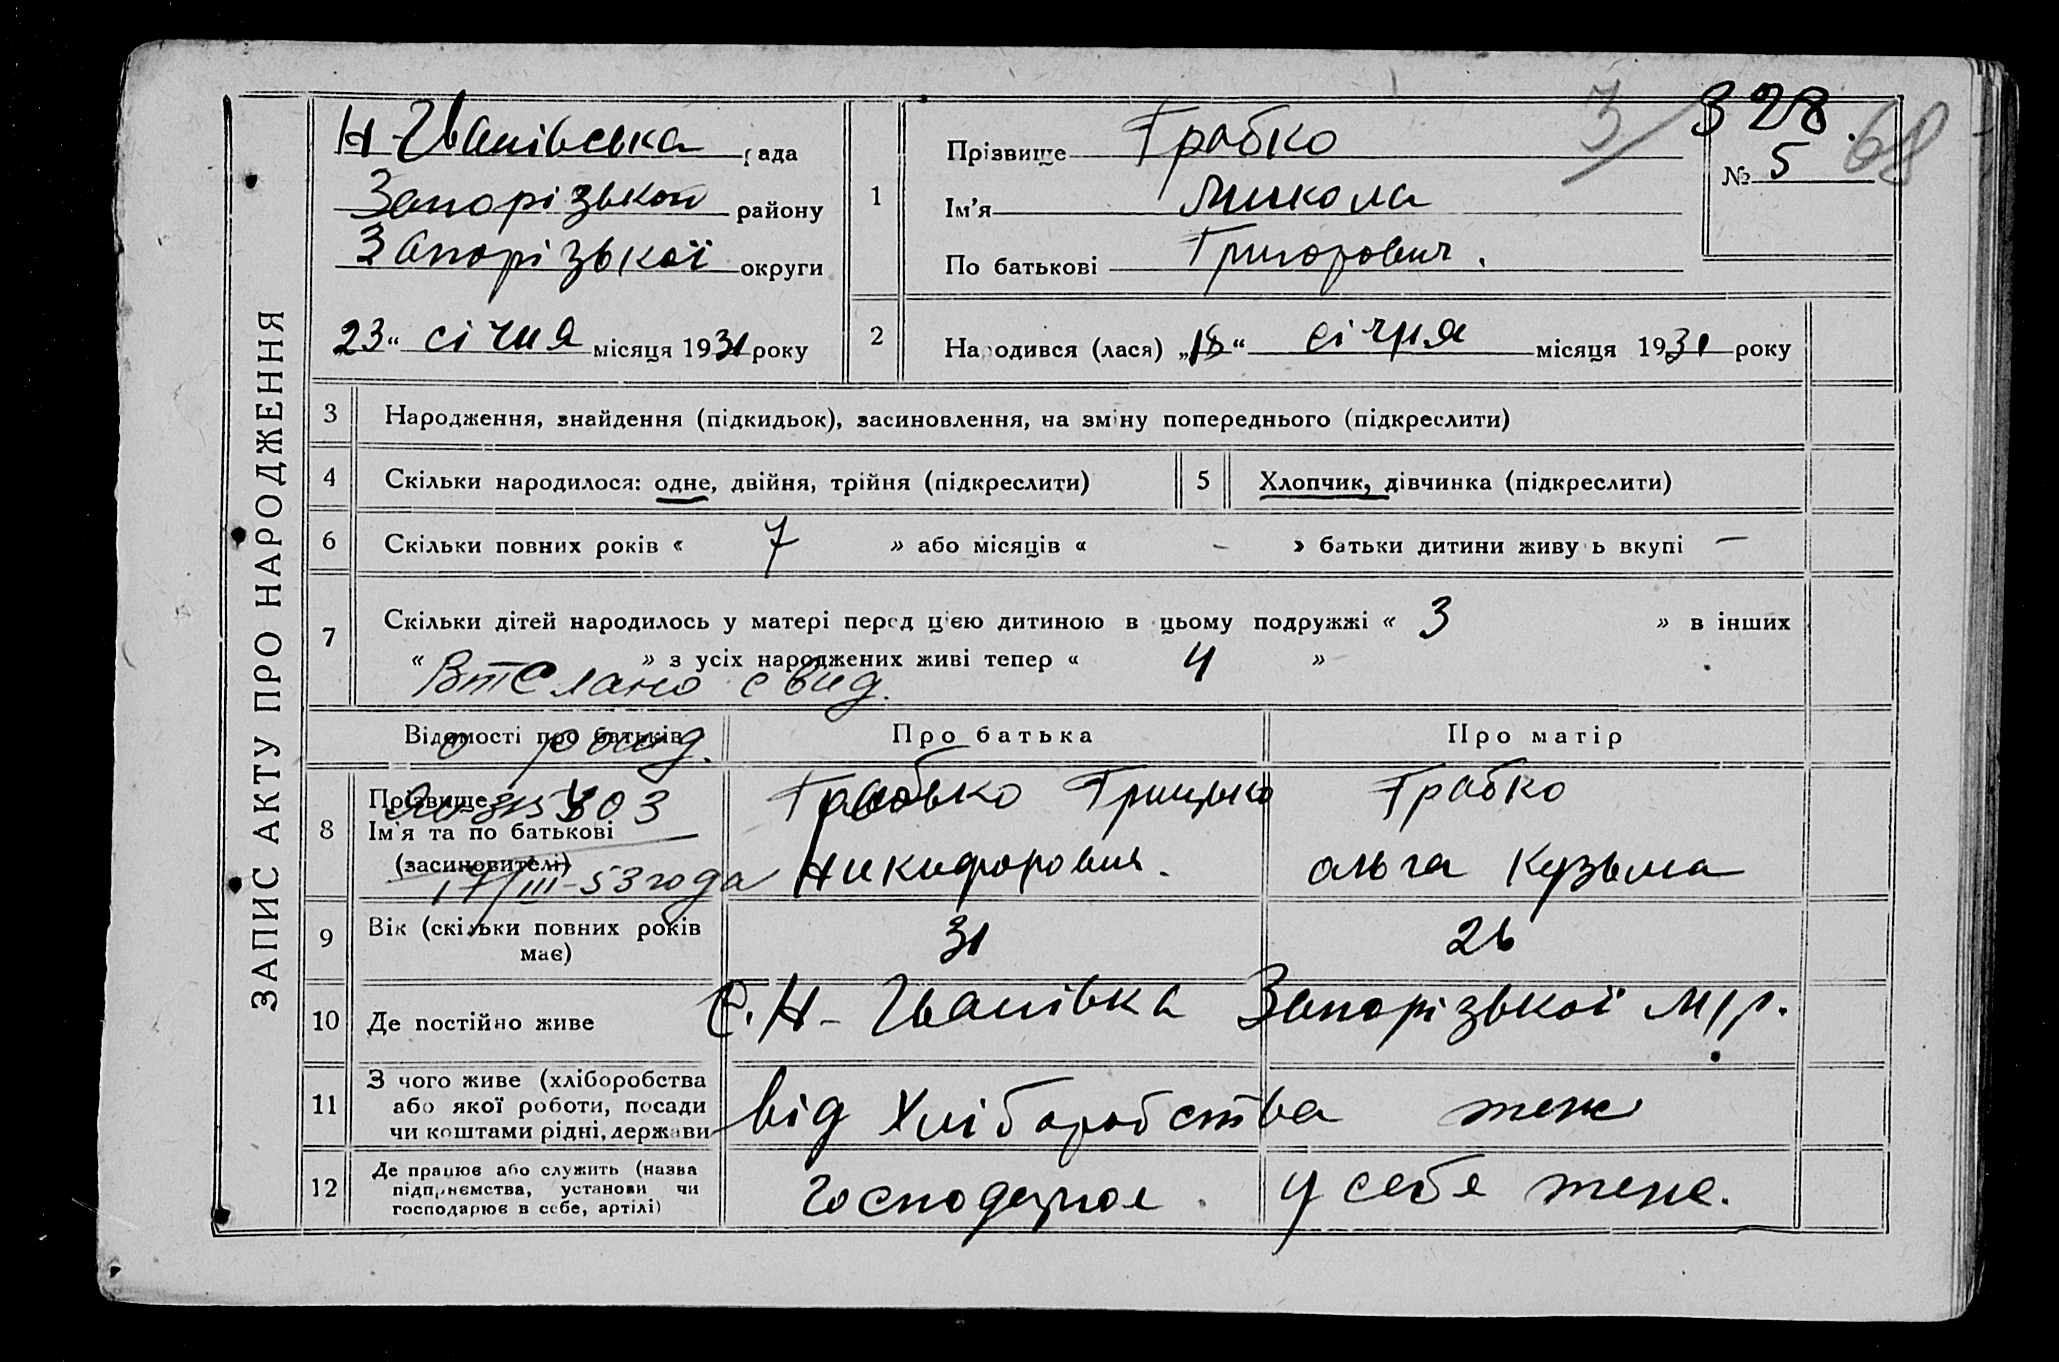 ЗАПИС АКТУ ПРО НАРОДЖЕННЯ
Н-Іванівська рада
Запорізького району
Запорізької округи
23 " січня місяця 1931 року
1
Прізвище Грабко
Ім'я Микола
По батькові Григорович.
3/
328.
№ 5
68
2
Народився (лася) „18" січня місяця 1931 року
3 Народження, знайдення (підкидьок), засиновлення, на зміну попереднього (підкреслити)
4 Скільки народилося: одне, двійня, трійня (підкреслити)
5 Хлопчик, дівчинка (підкреслити)
6 Скільки повних років « 7 » або місяців « - » батьки дитини живуть вкупі —
7 Скільки дітей народилось у матері перед цією дитиною в цьому подружжі « 3 » в інших
« » з усіх народжених живі тепер « 4 »
свид.
Відомості про батьків
о рожд.
Про батька
Про матір
8 Прізвище
Ім'я та по батькові
(засиновителі)
17/III-53 года
Грабько Грицько
Никифорович.
Грабко
Ольга Кузьма
9 Вік (скільки повних років має)
31
26
10 Де постійно живе
С. Н-Іванівка Запорізької м/р.
11 З чого живе (хліборобства
або якої роботи, посади
чи коштами рідні, держави
від хліборобства
теж
12 Де працює або служить (назва
підприємства, установи чи
господарює в себе, артілі)
господарює
у себе теж.